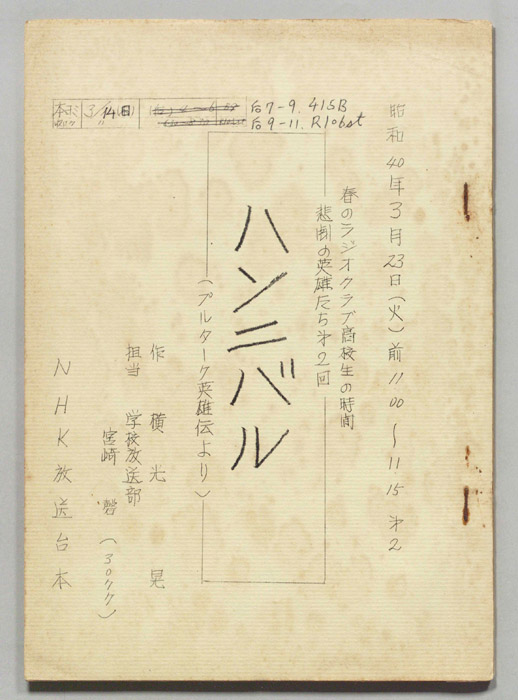 昭和40年3月23日(火)前11 00～11 15 オ2
春のラジオクラブ高校生の時間
悲劇の英雄たちオ2回
ハンニバル
(プルターク英雄伝より)
作 横光 晃
担当 学校放送部
宮崎 (3077)
NHK放送台本
本ヨミ 3/14(日)
后7-9. 415B
后9-11. R106st